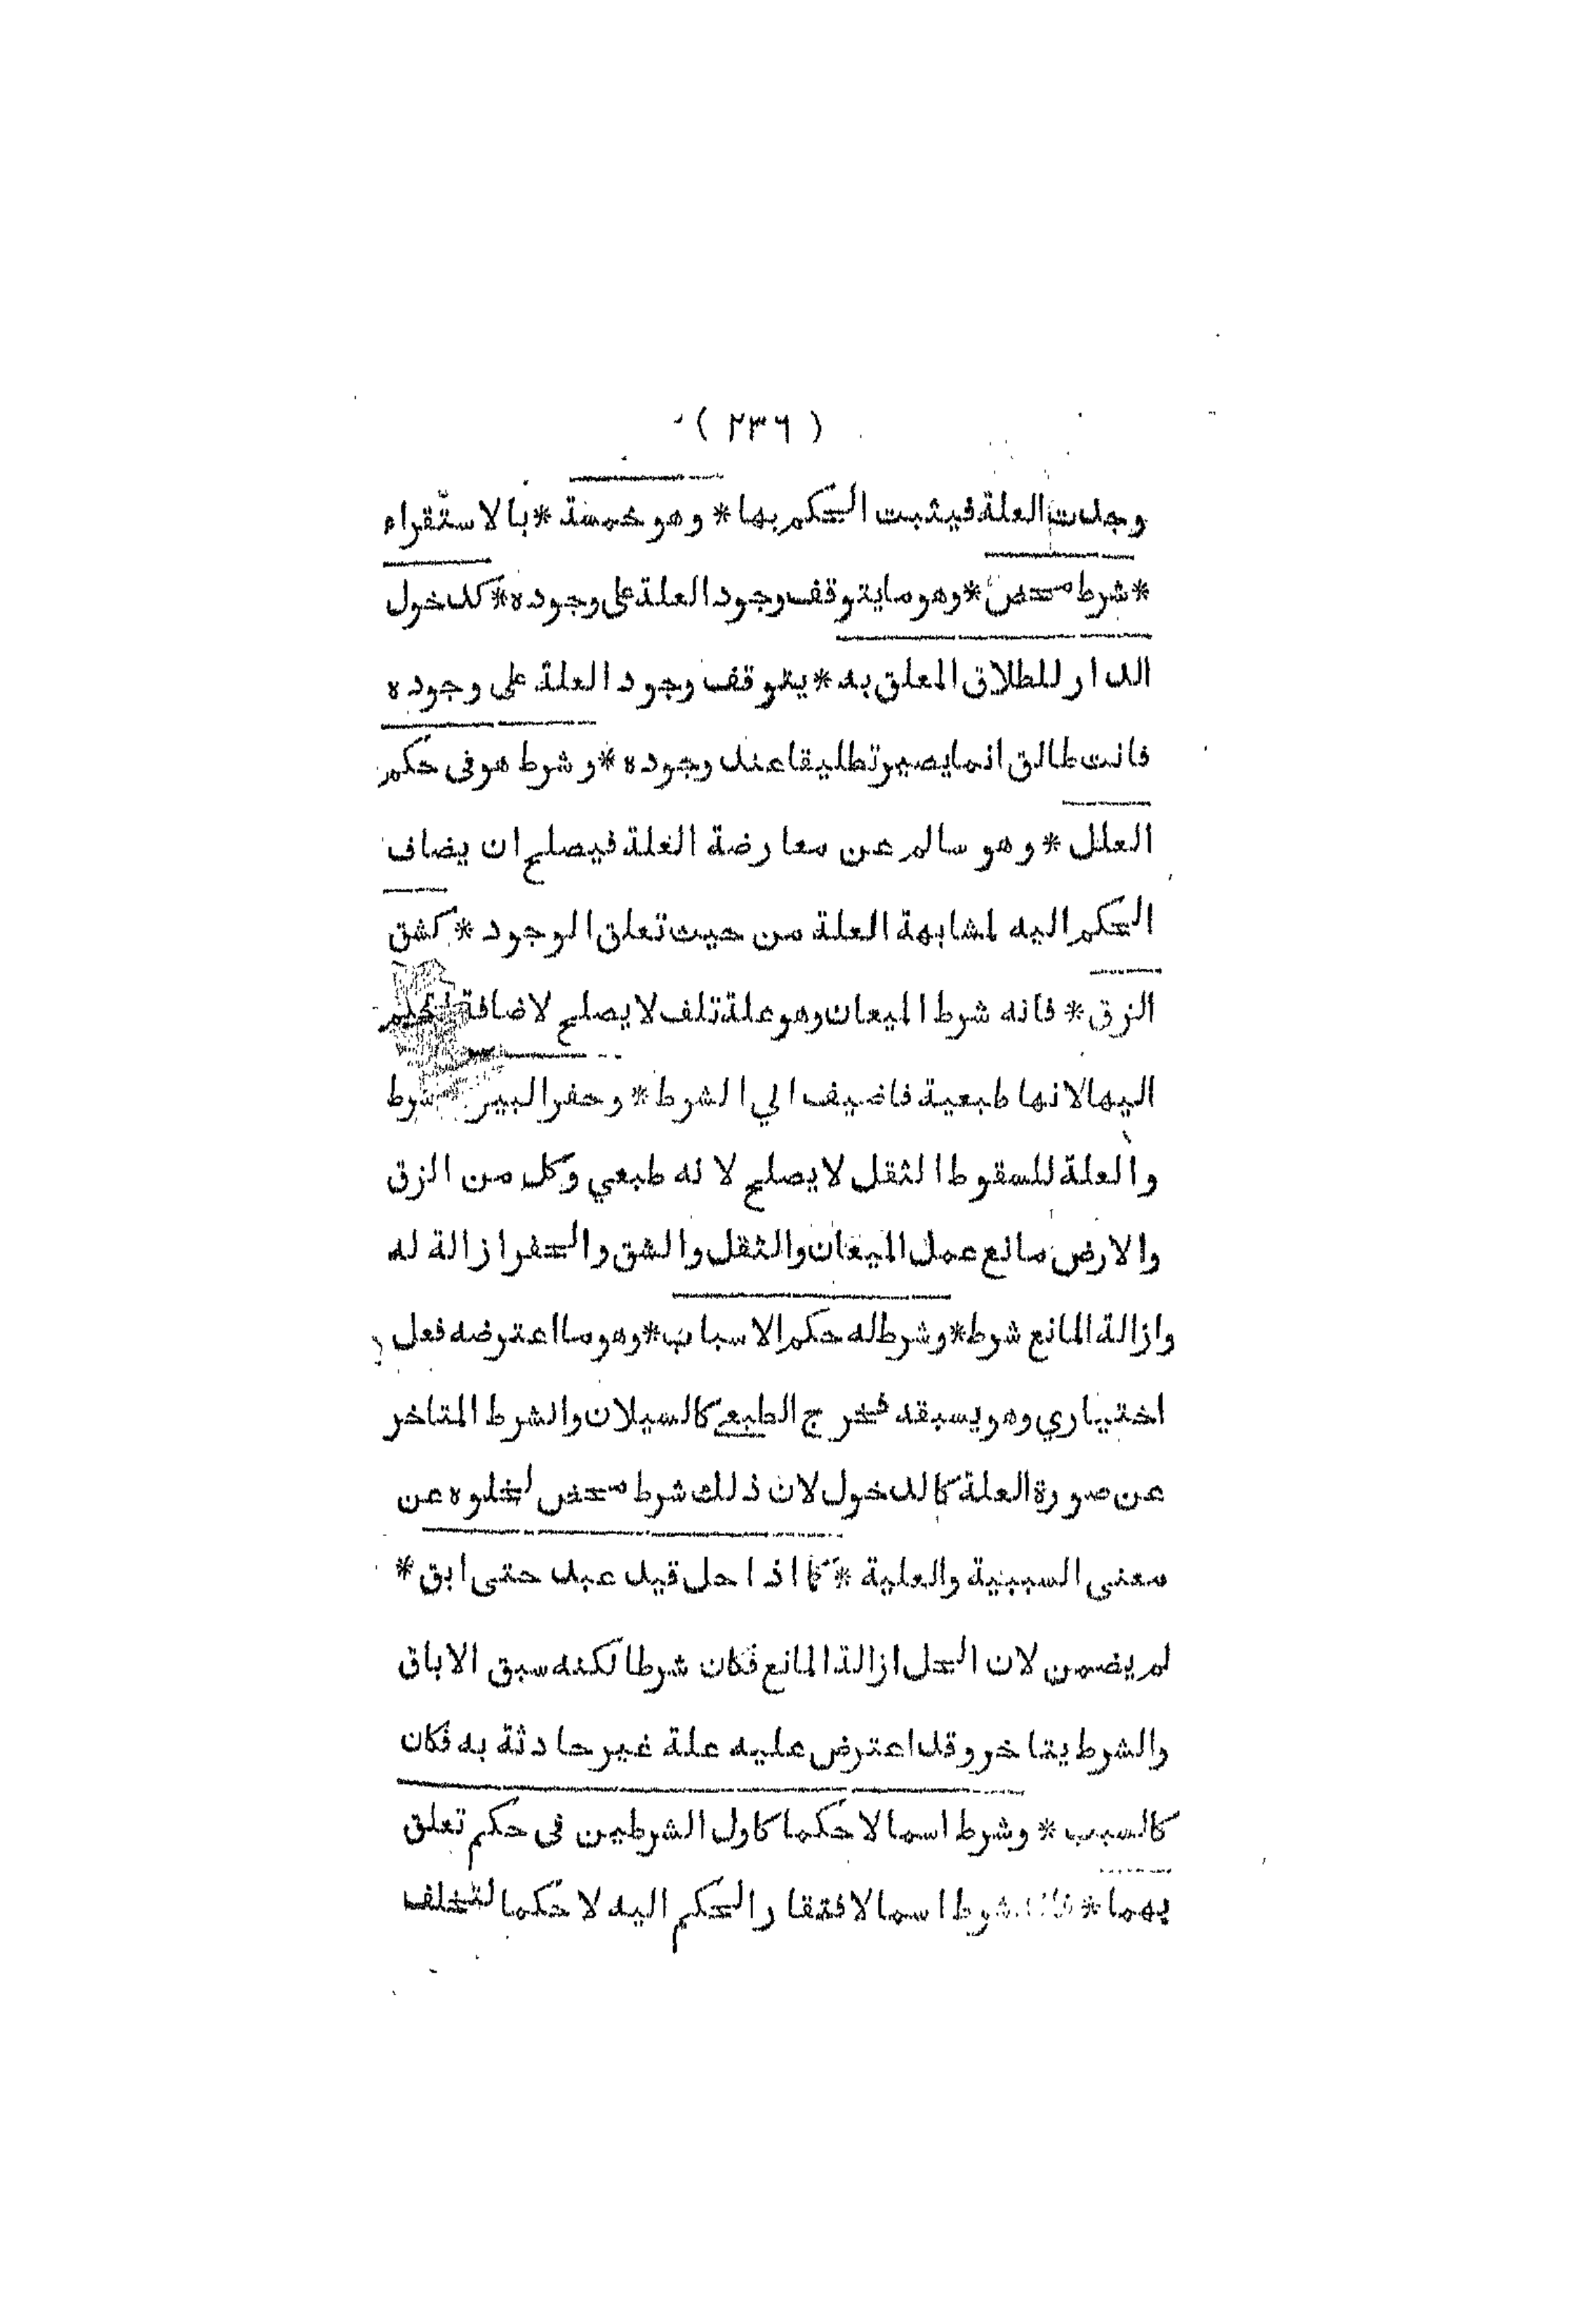 ( ٢٣٦ )
وجدت العلة فيثبت الحكم بها * وهو خمسة * بالاستقراء
* شرط محض * وهو ما يتوقف وجود العلة على وجوده * كدخول
الدار للطلاق المعلق به * يتوقف وجود العلة على وجوده
فانت طالق انما يصير تطليقا عند وجوده * وشرط هو في حكم
العلل * وهو سالم عن معارضة العلة فيصلح ان يضاف
الحكم اليه لمشابهة العلة من حيث تعلق الوجود * كشق
الزق * فانه شرط الميعان وهو علة تلف لا يصلح لاضافة الحكم
اليها لانها طبعية فاضيف الي الشرط * وحفر البير * شرط
والعلة للسقوط الثقل لا يصلح لانه طبعي وكل من الزق
والارض مانع عمل الميعان والثقل والشق والحفر ازالة له
وازالة المانع شرط * وشرط له حكم الاسباب * وهو ما اعترضه فعل
اختياري وهو يسبقه فخرج الطبع كالسيلان والشرط المتاخر
عن صورة العلة كالدخول لان ذلك شرط محض لخلوه عن
معنى السببية والعلية * كما اذا حل قيد عبد حتى ابق *
لم يضمن لان الحل ازالة المانع فكان شرطا لكنه سبق الاباق
والشرط يتاخر وقد اعترض عليه علة غير حادثة به فكان
كالسبب * وشرط اسما لا حكما كاول الشرطين في حكم تعلق
بهما * شرط اسما لافتقار الحكم اليه لا حكما لتخلف